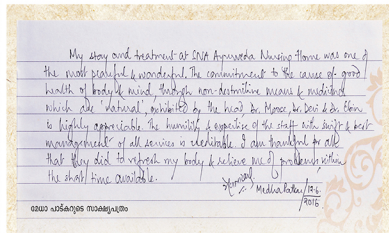 My stay and treatment at SNA Ayurveda Nursing Home was one of
the most peaceful & wonderful. The commitment to the cause of good
health of body & mind through non-destructive means & medicines
which are 'natural', exhibited by the head, Dr. Mooss, Dr. Devi & Dr.
is highly appreciable. The humility & expertise of the staff with swift & best
management of all services is creditable. I am thankful for all
that they did to refresh my body & relieve me of problems within
the short time available.
Medha Patkar 12.6.
2016
മേധാ പാട്കറുടെ സാക്ഷ്യപത്രം